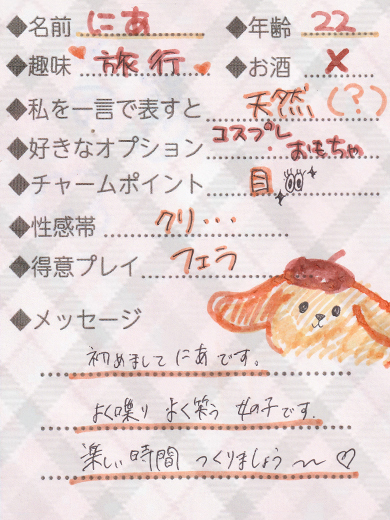 ◆名前 にあ ◆年齢 22
◆趣味 旅行 ◆お酒 ×
◆私を一言で表すと 天然(?)
◆好きなオプション コスプレ おもちゃ
◆チャームポイント 目
◆性感帯 クリ・・・
◆得意プレイ フェラ
◆メッセージ
初めまして にあです。
よく喋り よく笑う 女の子です。
楽しい時間 つくりましょう〜♡